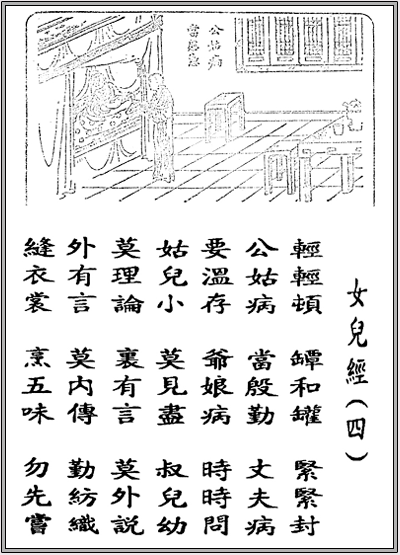 公姑病
當
女兒經(四)
輕輕頓 罈和罐 緊緊封
公姑病 當殷勤 丈夫病
要溫存 爺娘病 時時問
姑兒小 莫見盡 叔兒幼
莫理論 裏有言 莫外説
外有言 莫內傳 勤紡織
縫衣裳 烹五味 勿先嘗